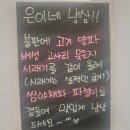 은이네 냉삼!!
불판에 고기 양파
버섯 고사리 묵은지
시래기를 같이 올려
(시래기는 살짝만 굽기)
쌈야채와 파절이를
곁들여 맛있게 냠냠
드세요~